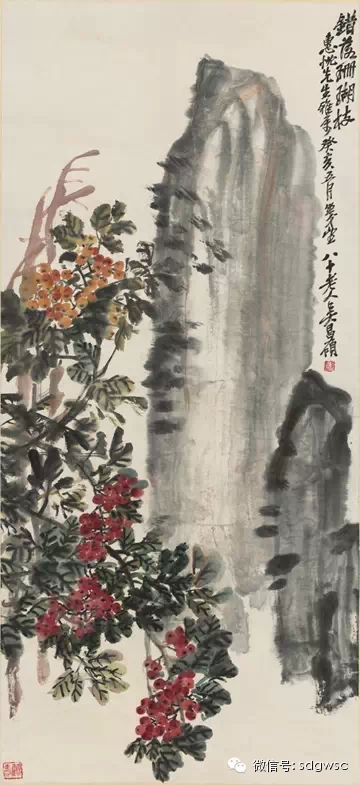 錯落珊瑚枝
惠忱先生雅屬癸亥五月八十老人吳昌碩
微信号: sdgwsc